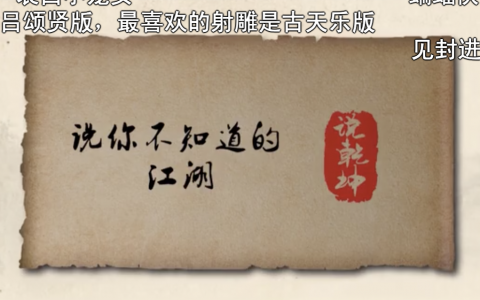 吕颂贤版，最喜欢的射雕是古天乐版
见封进
说你不知道的
江湖
说乾坤